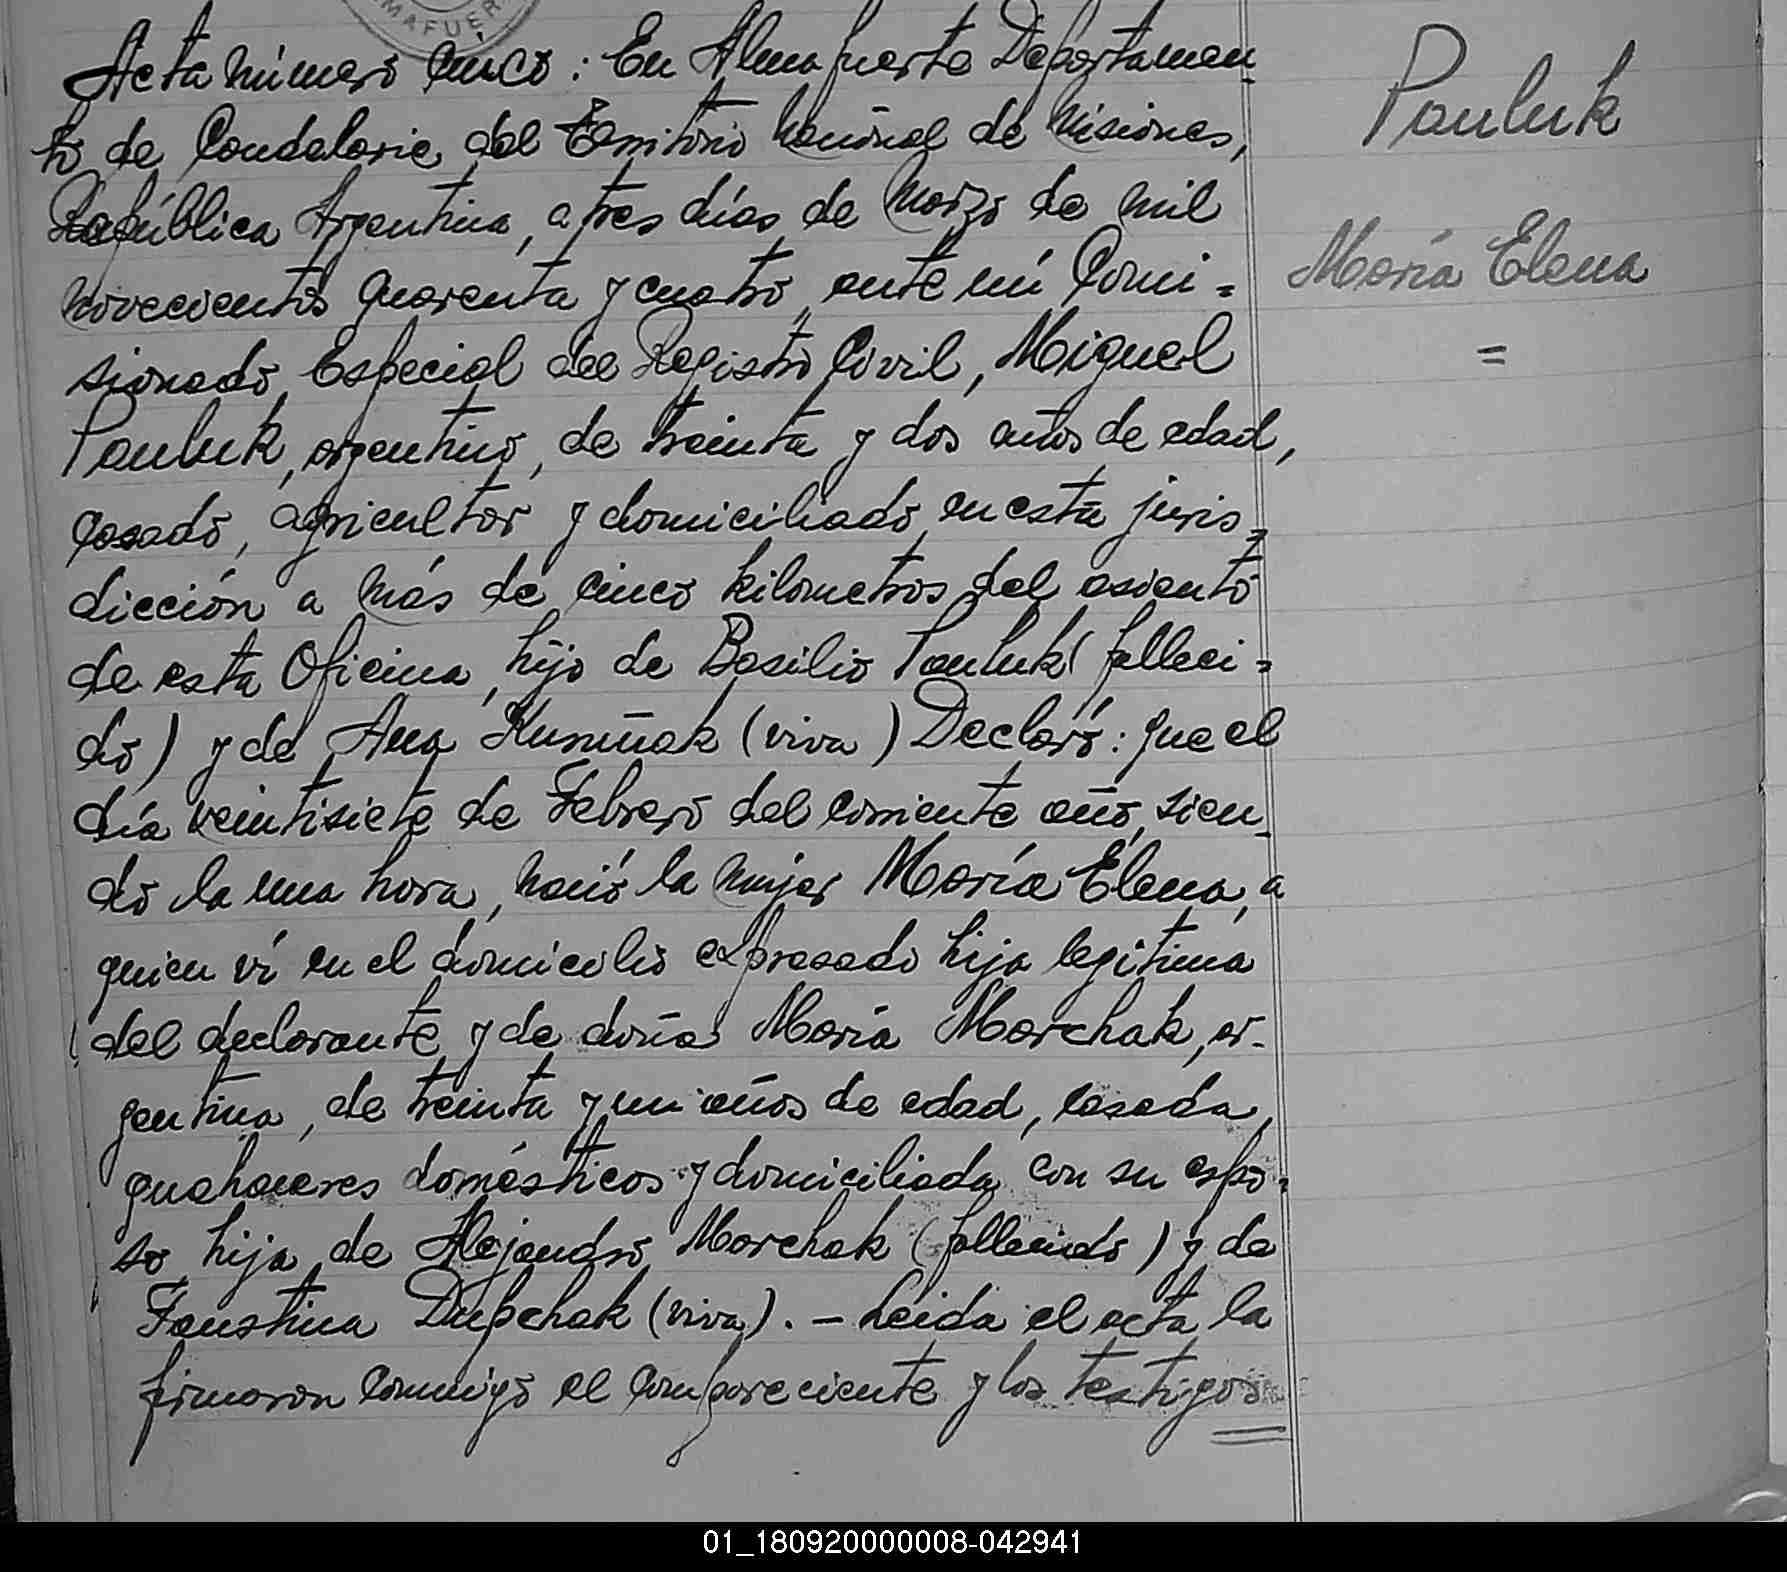 MAFUER
Acta número cinco: En Almafuerte Departamen-
to de Candelaria del Territorio Nacional de Misiones,
República Argentina, a tres días de Marzo de mil
novecientos cuarenta y cuatro, ante mí Comi=
sionado Especial del Registro Civil, Miguel
Pauluk, argentino, de treinta y dos años de edad,
casado, agricultor y domiciliado en esta juris=
dicción a más de cinco kilometros del asiento
de esta Oficina, hijo de Basilio Pauluk (falleci=
do) y de Ana (viva) Declaró: que el
día veintisiete de Febrero del corriente año, sien-
do la una hora, nació la mujer María Elena, a
quien ví en el domicilio expresado hija legitima
del declarante y de doña María Marchak, ar-
gentina, de treinta y un años de edad, casada,
quehaceres domésticos y domiciliada con su espo=
so hija de Alejandro Marchak (fallecido) y de
Faustina Dupchak (viva). - Leida el acta la
firmaron conmigo el compareciente y los testigos
Pauluk
María Elena
=
01_180920000008-042941